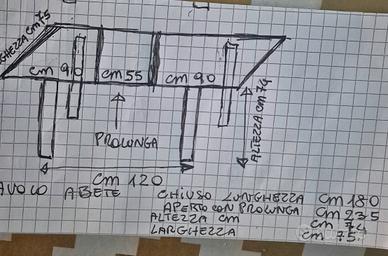 GHEZZA CM 75
CM 90
CM 55
CM 90
ALTEZZA CM 74
PROLUNGA
CM 120
AVOLO ABETE
CHIUSO LUNGHEZZA CM 180
APERTO CON PROLUNGA CM 235
ALTEZZA CM CM 74
LARGHEZZA CM 75